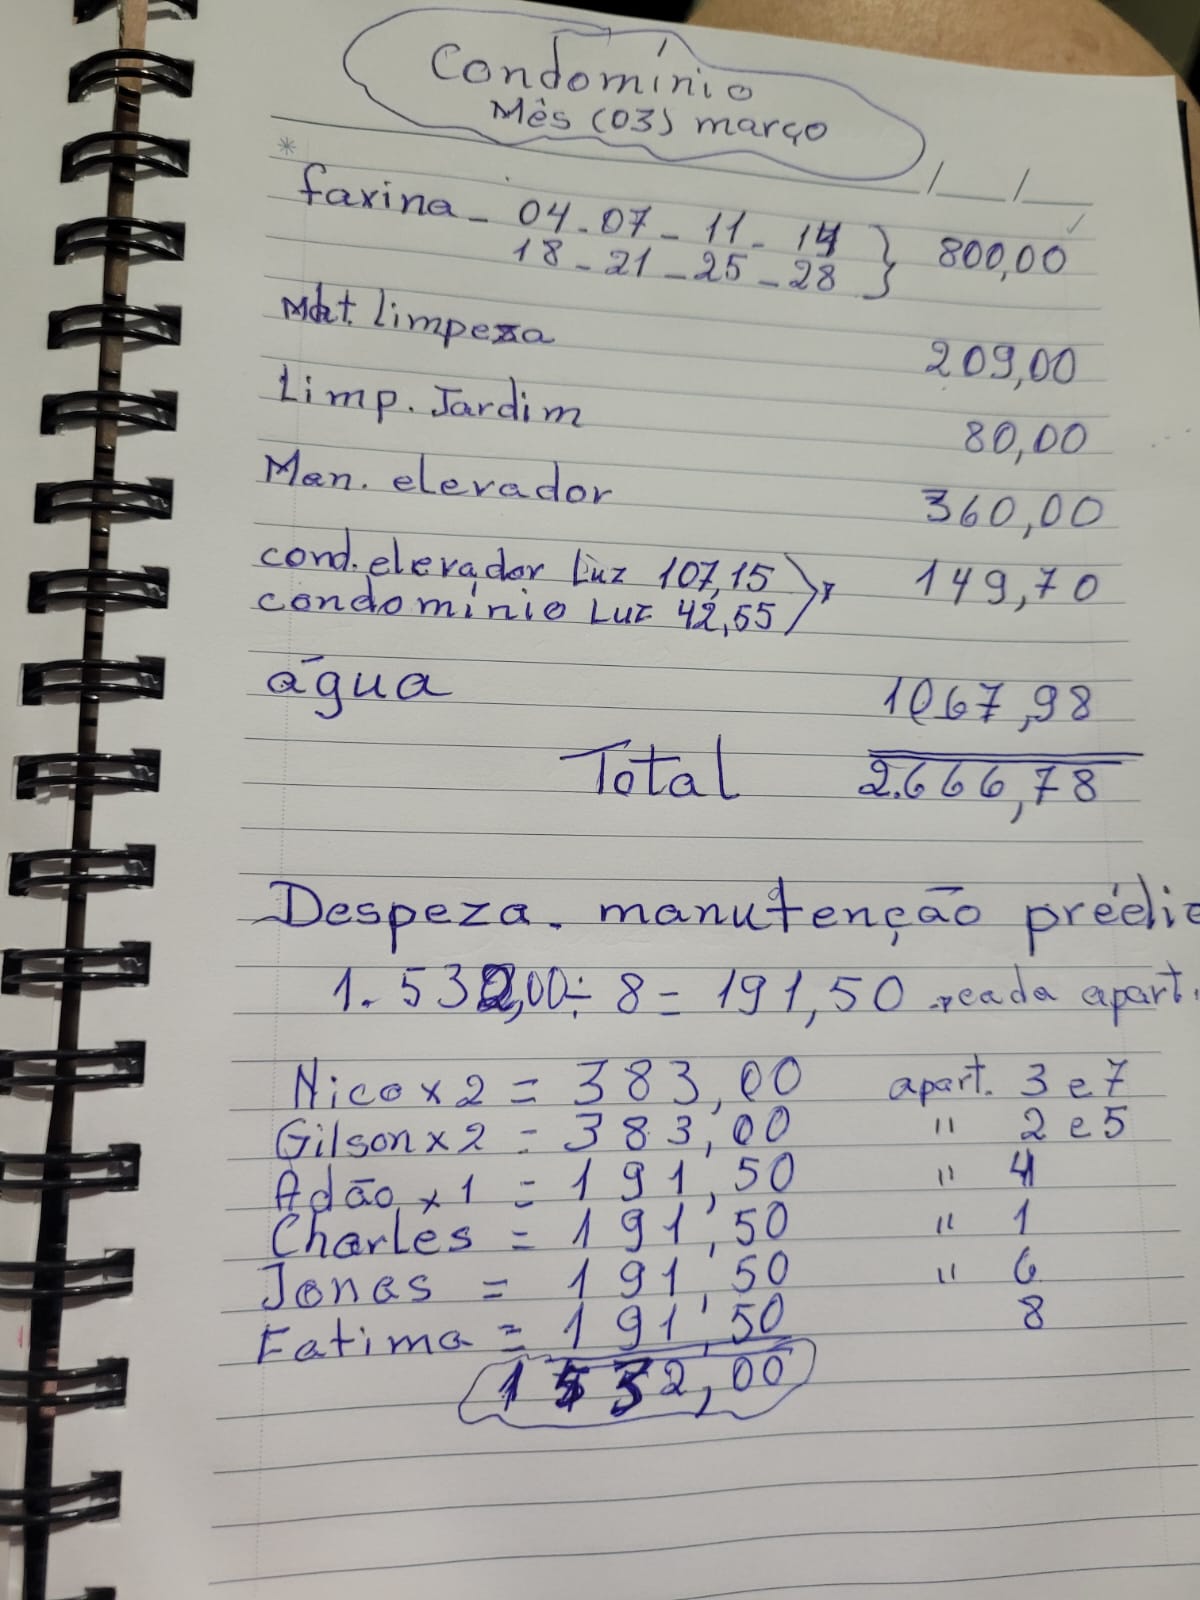 Condomínio
Mês (03) março
faxina - 04 - 07 - 11 - 14 } 800,00
18 - 21 - 25 - 28
Mat. limpeza 209,00
Limp. Jardim 80,00
Man. elevador 360,00
cond. elevador Luz 107,15 149,70
condomínio Luz 42,55
água 1067,98
Total 2.666,78
Despeza. manutenção préédio
1.532,00 ÷ 8 = 191,50 cada apart.
Nico x 2 = 383,00 apart. 3 e 7
Gilson x 2 = 383,00 " 2 e 5
Adão x 1 = 191,50 " 4
Charles = 191,50 " 1
Jonas = 191,50 " 6
Fatima = 191,50 8
1532,00